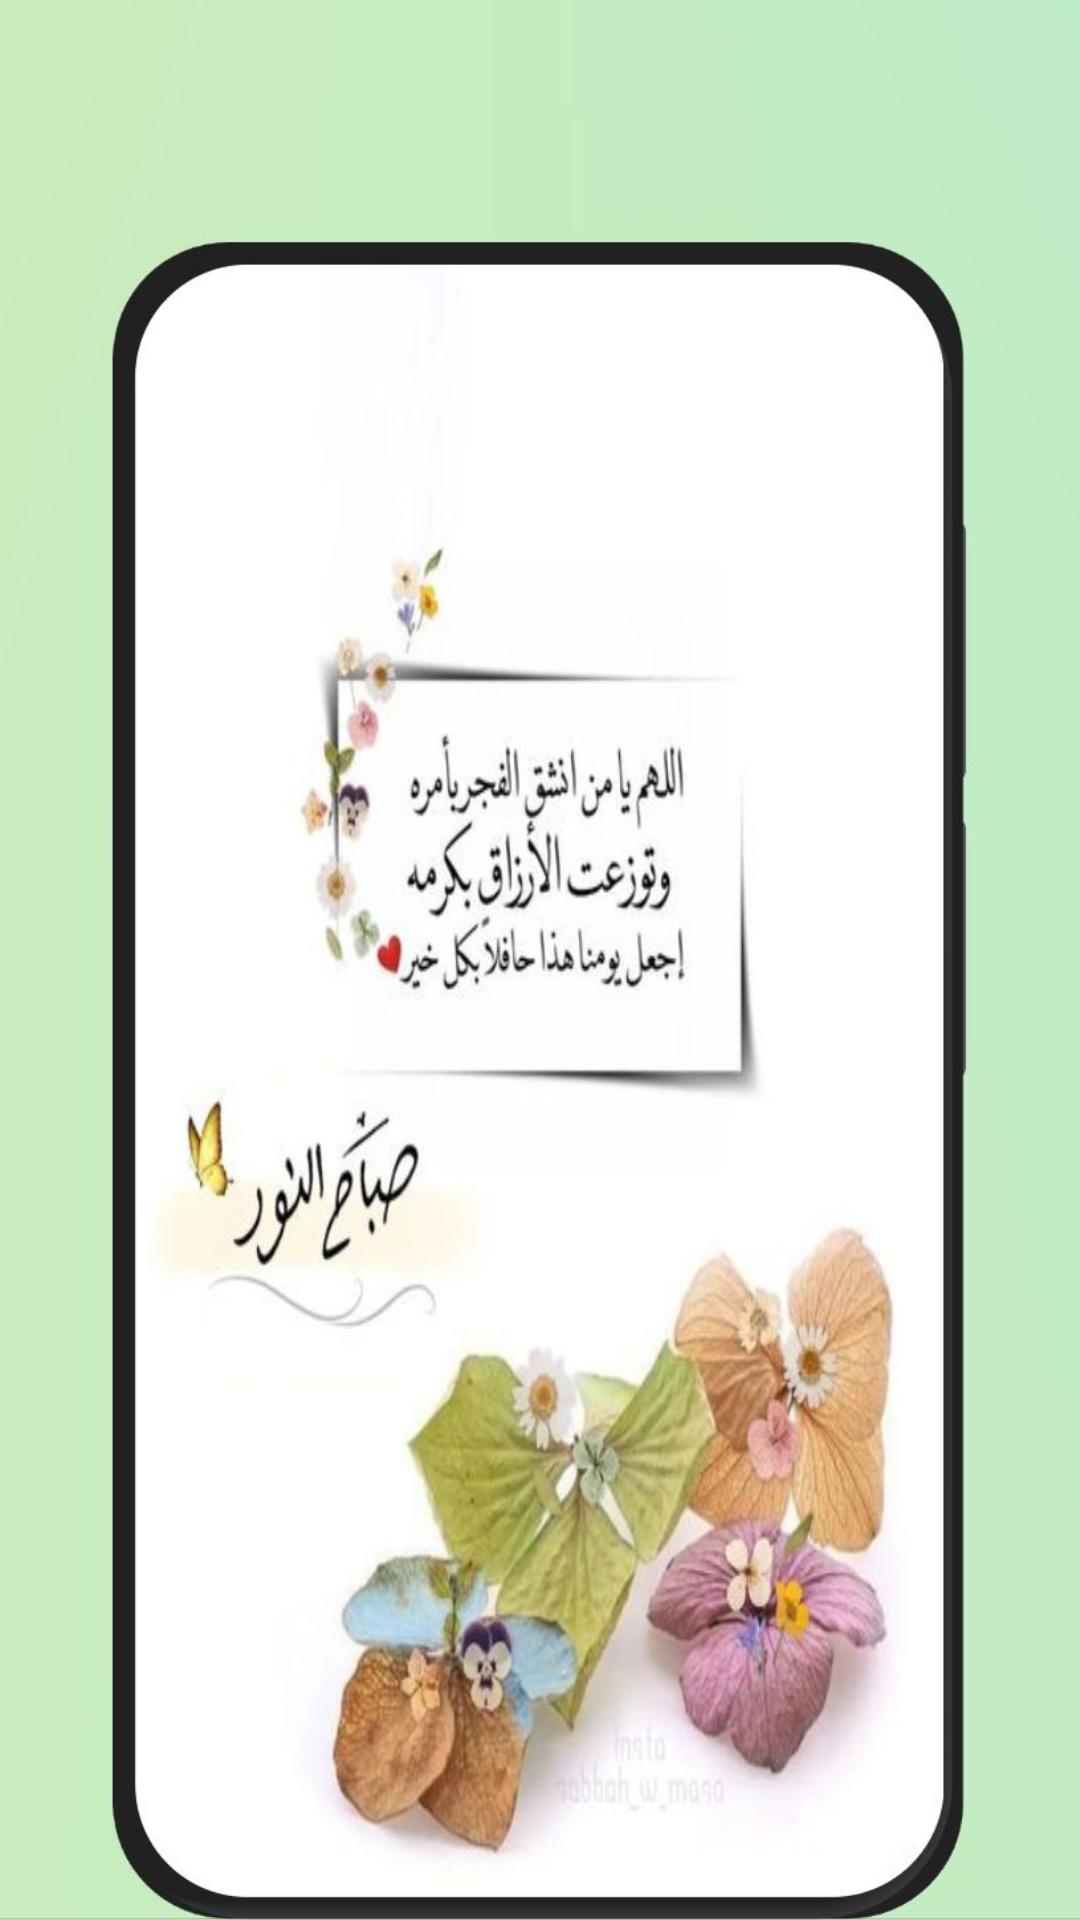 اللهم يا من انشق الفجر بأمره
وتوزعت الأرزاق بكرمه
إجعل يومنا هذا حافلاً بكل خير
صباح النور
insta
sabbah_w_masa